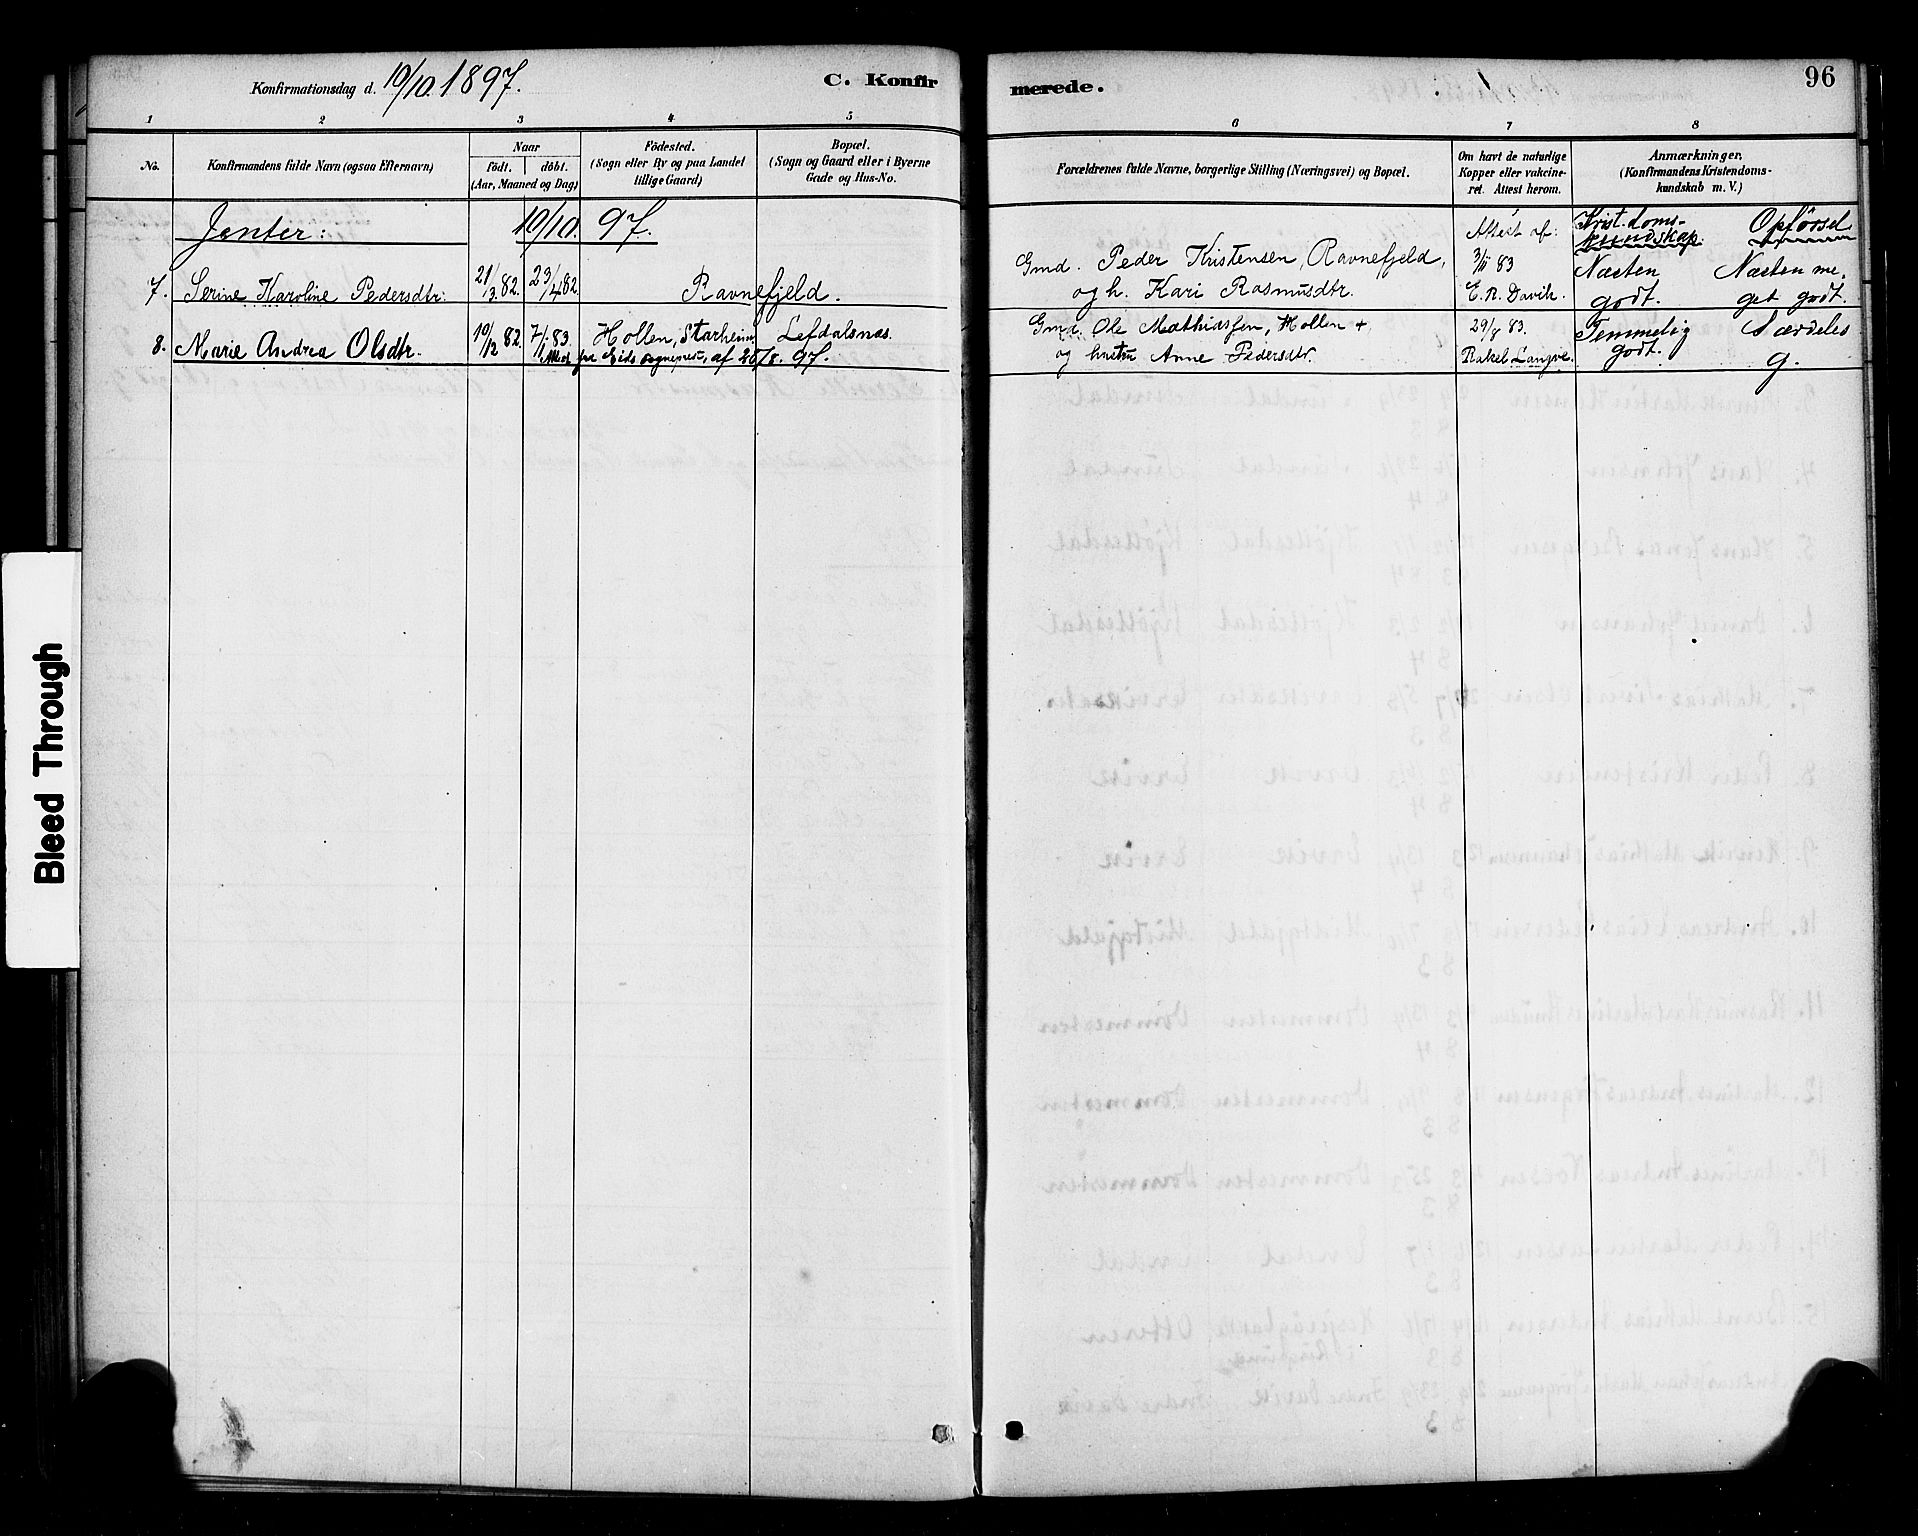 Konfirmationsdag d. 10/10. 1897.
C. Konfirmerede.
96
1 2 3 4 5 6 7 8
No.
Konfirmandens fulde Navn (ogsaa Efternavn)
Naar
födt. döbt.
(Aar, Maaned og Dag)
Födested.
(Sogn eller By og paa Landet
tillige Gaard)
Bopæl.
(Sogn og Gaard eller i Byerne
Gade og Hus-No.
Forældrenes fulde Navne, borgerlige Stilling (Næringsvei) og Bopæl.
Om havt de naturlige
Kopper eller vakcine-
ret. Attest herom.
Anmærkninger.
(Konfirmandens Kristendoms-
kundskab m. V.)
Jenter: 10/10. 97.
Attest af: Krist.doms- Opförsel
kundskap.
7. Serine Karoline Pedersdtr. 21/3.82. 23/4 82. Ravnefjeld.
Gmd. Peder Kristensen, Ravnefjeld,
og h. Kari Rasmusdtr.
3/11 83
E. R. Davik.
Næsten
godt.
Næsten me.
get godt.
8. Marie Andrea Olsdtr. 10/12 82. 7/1.83. Hollen, Starheim, Lefdalsnæs.
Attest fr Eids sogneprest, af 30/8. 97.
Gmd. Ole Mathiassen, Hollen +
og hustru Anne Pedersdtr.
29/8 83.
Rakel Langve.
Temmelig
godt.
Særdeles
g.
Bleed Through